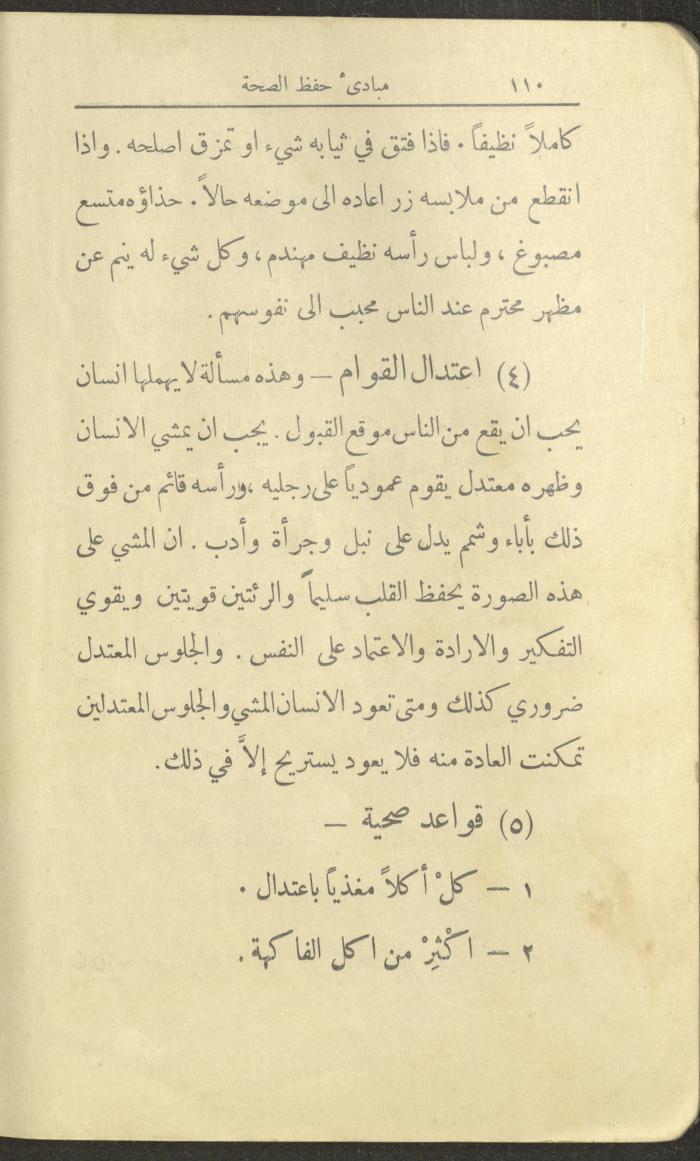 ١١٠ مبادىٔ حفظ الصحة
كاملاً نظيفاً . فاذا فتق في ثيابه شيء او تمزق اصلحه . واذا
انقطع من ملابسه زر اعاده الى موضعه حالاً . حذاؤه متسع
مصبوغ ، ولباس رأسه نظيف مهندم ، وكل شيء له ينم عن
مظهر محترم عند الناس محبب الى نفوسهم .
(٤) اعتدال القوام — وهذه مسألة لا يهملها انسان
يحب ان يقع من الناس موقع القبول . يجب ان يمشي الانسان
وظهره معتدل يقوم عمودياً على رجليه ، ورأسه قائم من فوق
ذلك بأباء وشمم يدل على نبل وجرأة وأدب . ان المشي على
هذه الصورة يحفظ القلب سليماً والرئتين قويتين ويقوي
التفكير والارادة والاعتماد على النفس . والجلوس المعتدل
ضروري كذلك ومتى تعود الانسان المشي والجلوس المعتدلين
تمكنت العادة منه فلا يعود يستريح إلاَّ في ذلك .
(٥) قواعد صحية —
١ — كلْ أكلاً مغذياً باعتدال .
٢ — اكْثِرْ من اكل الفاكهة .